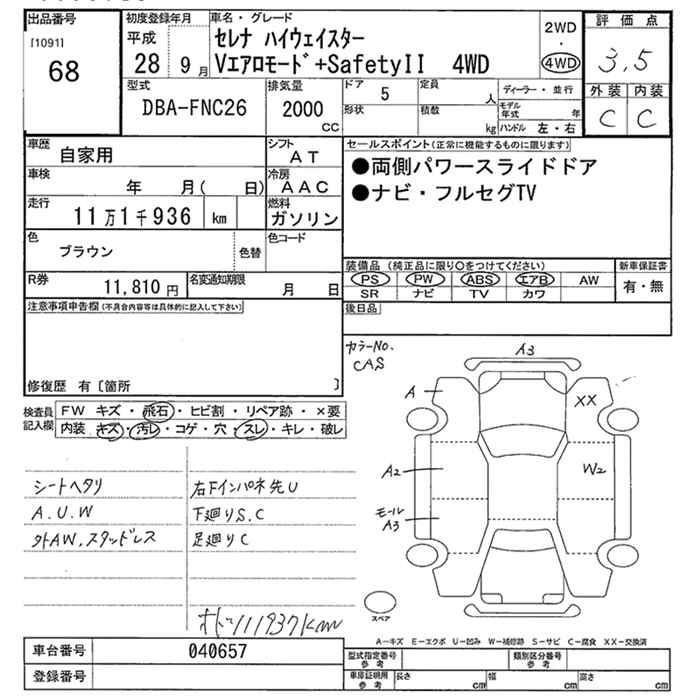 出品番号
[1091]
68
初度登録年月
平成
28 9月
車名・グレード
セレナ ハイウェイスター
Vエアロモード+SafetyII 4WD
2WD
・
4WD
評価点
3.5
外装 内装
C C
型式
DBA-FNC26
排気量
2000
CC
ドア 5
形状
定員 人
積数 kg
ディーラー・並行
モデル年式 年
ハンドル 左・右
車歴
自家用
シフト
AT
車検
年 月( 日)
冷房
AAC
走行
11万1千936 km
燃料
ガソリン
色
ブラウン
色替
色コード
R券
11,810円
名変通知期限
月 日
セールスポイント(正常に機能するものに限ります)
●両側パワースライドドア
●ナビ・フルセグTV
装備品(純正品に限り○をつけてください)
PS PW ABS エアB AW
SR ナビ TV カワ
新車保証書
有・無
後日品
注意事項申告欄(不具合内容等は具体的に記入して下さい)
修復歴 有[箇所 ]
検査員記入欄
FW キズ・飛石・ヒビ割・リペア跡・×要
内装 キズ・汚レ・コゲ・穴・スレ・キレ・破レ
シートヘタリ
A.U.W
外AW.スタッドレス
右Fインパネ先U
下廻りS.C
足廻りC
オドソ111937km
カラーNo.
CAS
A3
A
XX
A2
W2
モール
A3
スペア
A―キズ E―エクボ U―凹み W―補修跡 S―サビ C―腐食 XX―交換済
車台番号
040657
登録番号
型式指定番号
参考
類別区分番号
参考
車庫証明用
参考
長さ cm
幅 cm
高さ cm